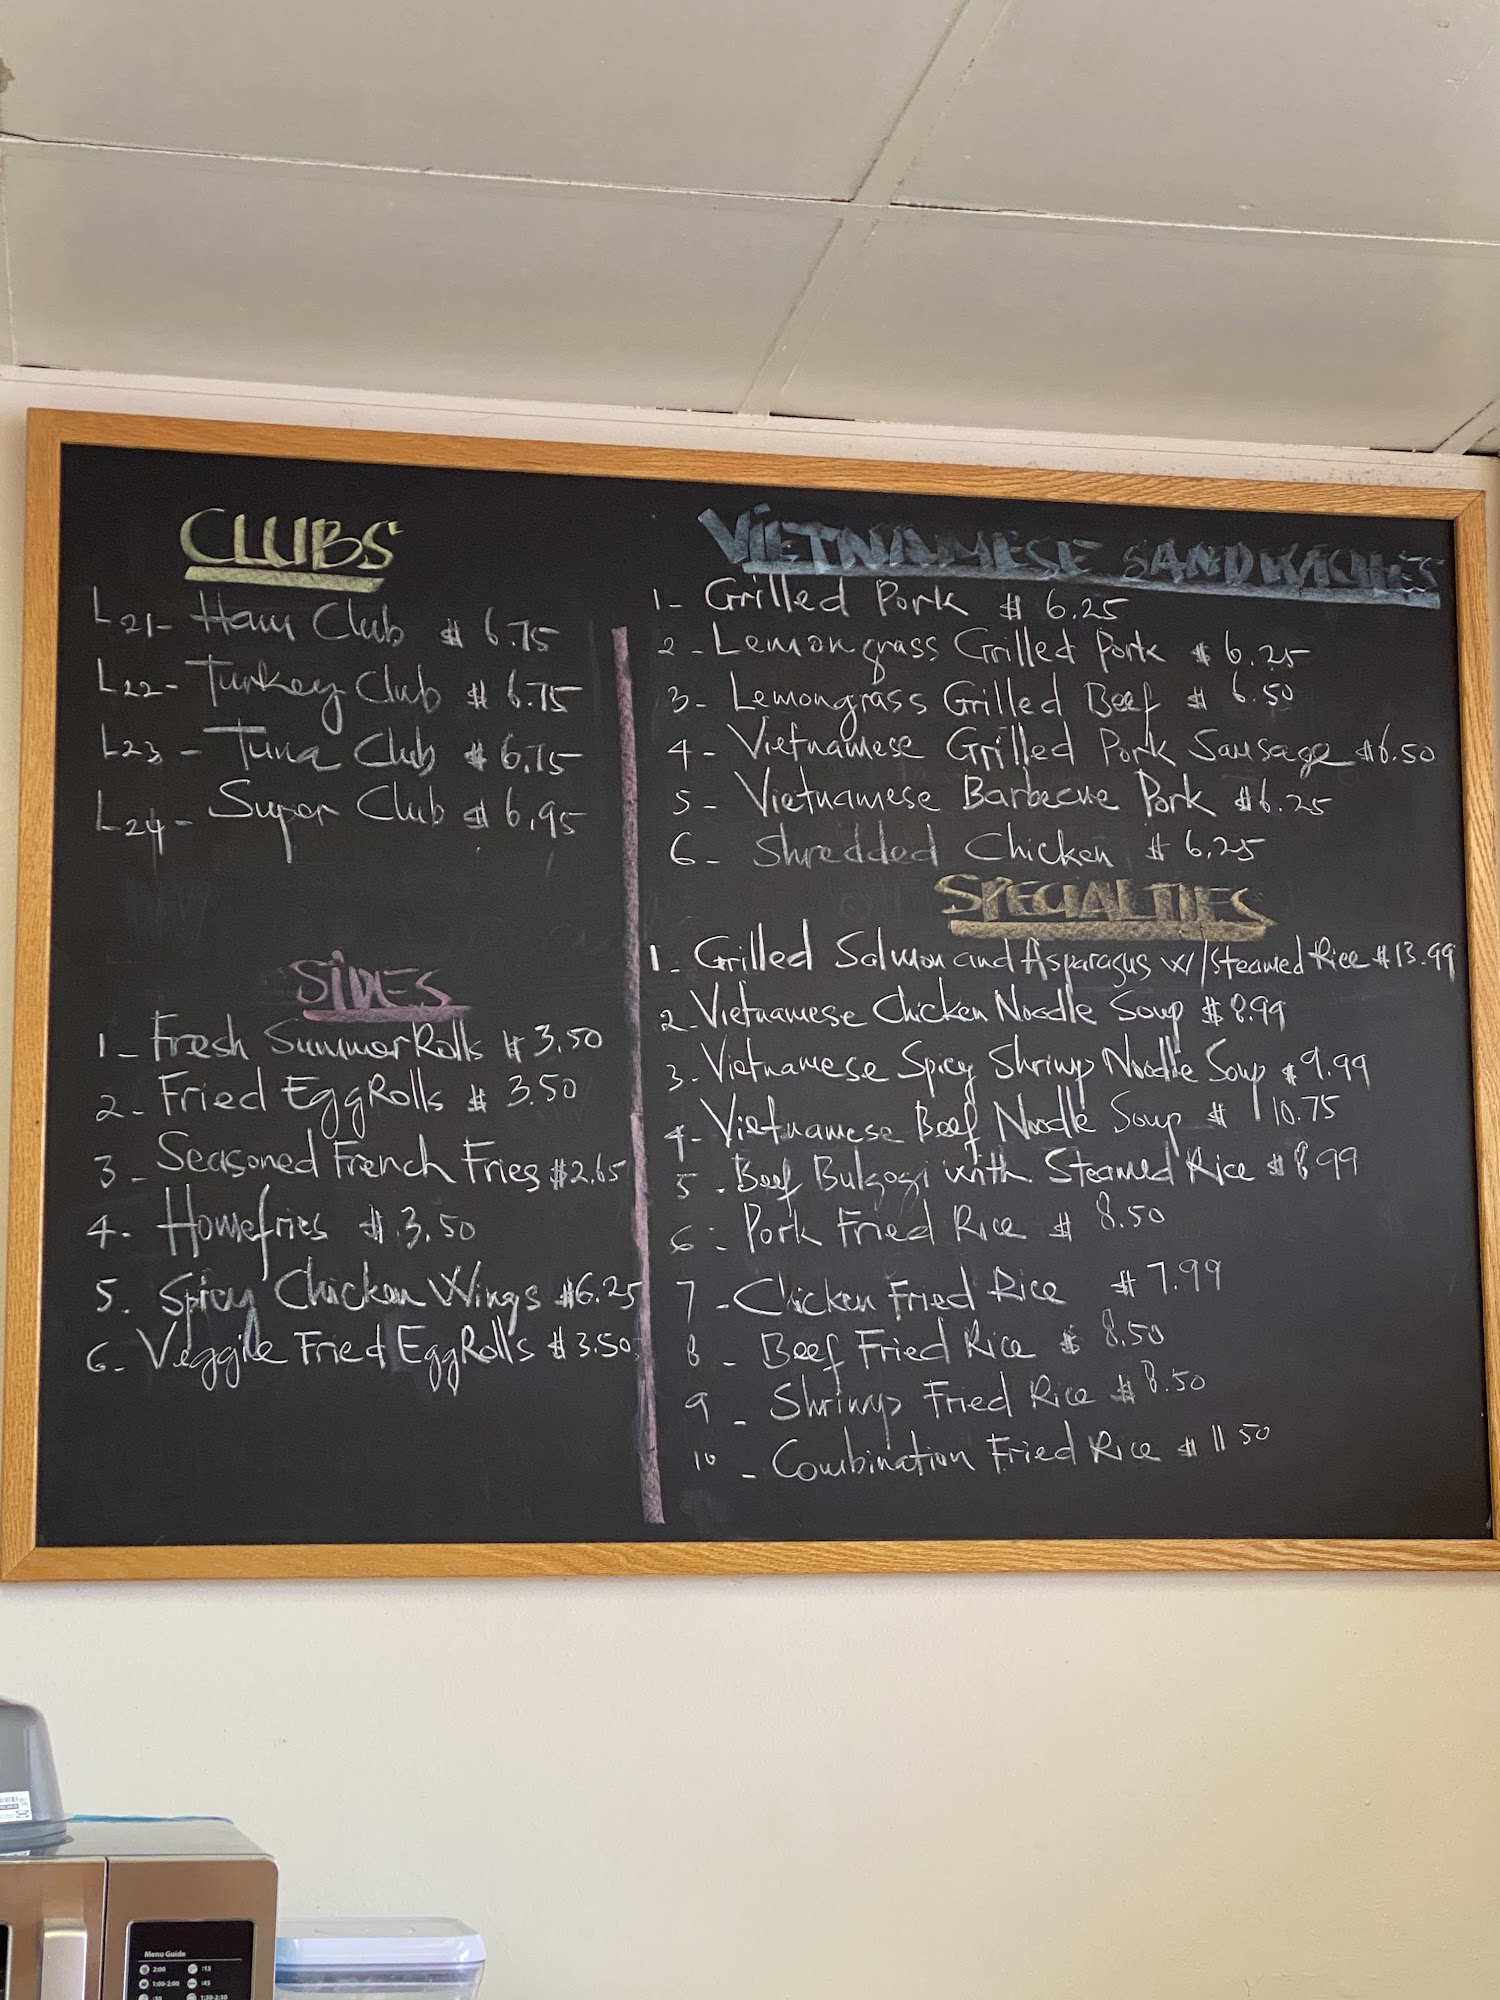 CLUBS
L21- Ham Club $ 6.75
L22- Turkey Club $ 6.75
L23- Tuna Club $ 6.75
L24- Super Club $ 6.95
SIDES
1- Fresh Summer Rolls $ 3.50
2- Fried Egg Rolls $ 3.50
3- Seasoned French Fries $2.65
4- Homefries $ 3.50
5. Spicy Chicken Wings $6.25
6- Veggie Fried Egg Rolls $ 3.50
VIETNAMESE SANDWICHES
1- Grilled Pork $ 6.25
2- Lemongrass Grilled Pork $ 6.25
3- Lemongrass Grilled Beef $ 6.50
4- Vietnamese Grilled Pork Sausage $6.50
5- Vietnamese Barbecue Pork $6.25
6- Shredded Chicken $ 6.25
SPECIALTIES
1- Grilled Salmon and Asparagus w/ Steamed Rice $13.99
2- Vietnamese Chicken Noodle Soup $ 8.99
3- Vietnamese Spicy Shrimp Noodle Soup $ 9.99
4- Vietnamese Beef Noodle Soup $ 10.75
5- Beef Bulgogi with Steamed Rice $ 8.99
6- Pork Fried Rice $ 8.50
7- Chicken Fried Rice $ 7.99
8- Beef Fried Rice $ 8.50
9- Shrimp Fried Rice $ 8.50
10- Combination Fried Rice $ 11.50
Menu Guide
2:00 :15
1:00-2:00 :45
:30 1:30-2:30